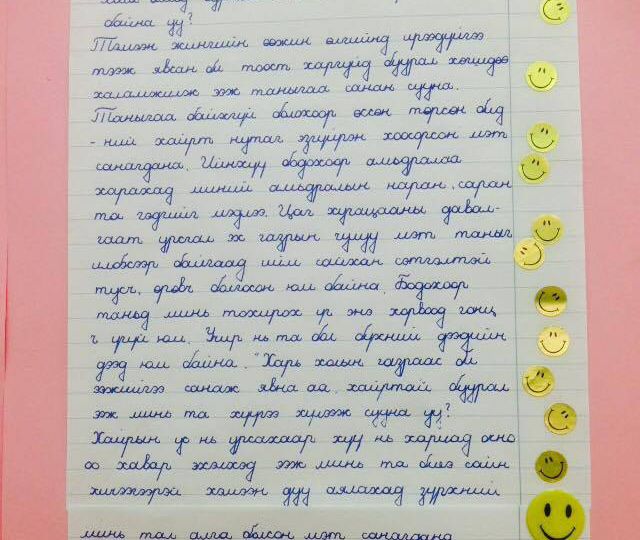 байна уу?
Тэмээн жингийн өөжин өлгийнд ирээдүйгээ
тээж явсан би тоост харгуйд буурал хөгшдөө
халамжилж ээж таныгаа санан сууна.
Таныгаа байхгүй болохоор өссөн төрсөн бид
-ний хайрт нутаг эзгүйрэн хоосорсон мэт
санагдана. Ийнхүү бодохоор амьдралаа
харахад миний амьдралын наран, саран
та гэдгийг мэдлээ. Цаг хугацааны давал-
гаат урсгал эх газрын чулуу мэт таныг
илбэсээр байгаад ийм сайхан сэтгэлтэй
тусч, өрөвч болгосон юм байна. Бодохоор
таньд минь тохирох үг энэ хорвоод ганц
ч үгүй юм. Учир нь та бол бүхний дээдийн
дээд юм байна. "Харь холын газраас би
ээжийгээ санаж явна аа, хайртай буурал
ээж минь та хүүгээ хүлээж сууна уу?
Хайрын үр нь урсахаар хүү нь хариад очно
оо хавар эхэлхэд ээж минь та биеэ сайн
хичээгээрэй хэмээн дуу аялахад зүрхний
минь тал алга болсон мэт санагдана